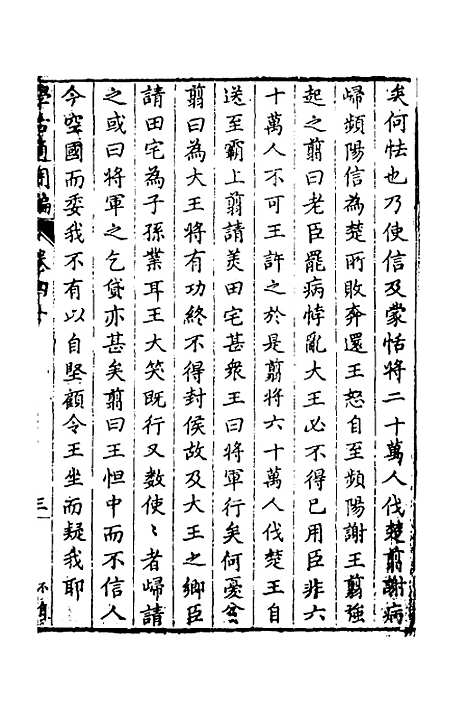 矣何怯也乃使信及蒙恬將二十萬人伐楚翦謝病
歸頻陽信為楚所敗奔還王怒自至頻陽謝王翦強
起之翦曰老臣罷病悖亂大王必不得已用臣非六
十萬人不可王許之於是翦將六十萬人伐楚王自
送至霸上翦請美田宅甚衆王曰將軍行矣何憂貧
翦曰為大王將有功終不得封侯故及大王之鄉臣
請田宅為子孫業耳王大笑既行又數使〻者歸請
之或曰將軍之乞貸亦甚矣翦曰王怚中而不信人
今空國而委我不有以自堅顧令王坐而疑我耶
卷四十
三